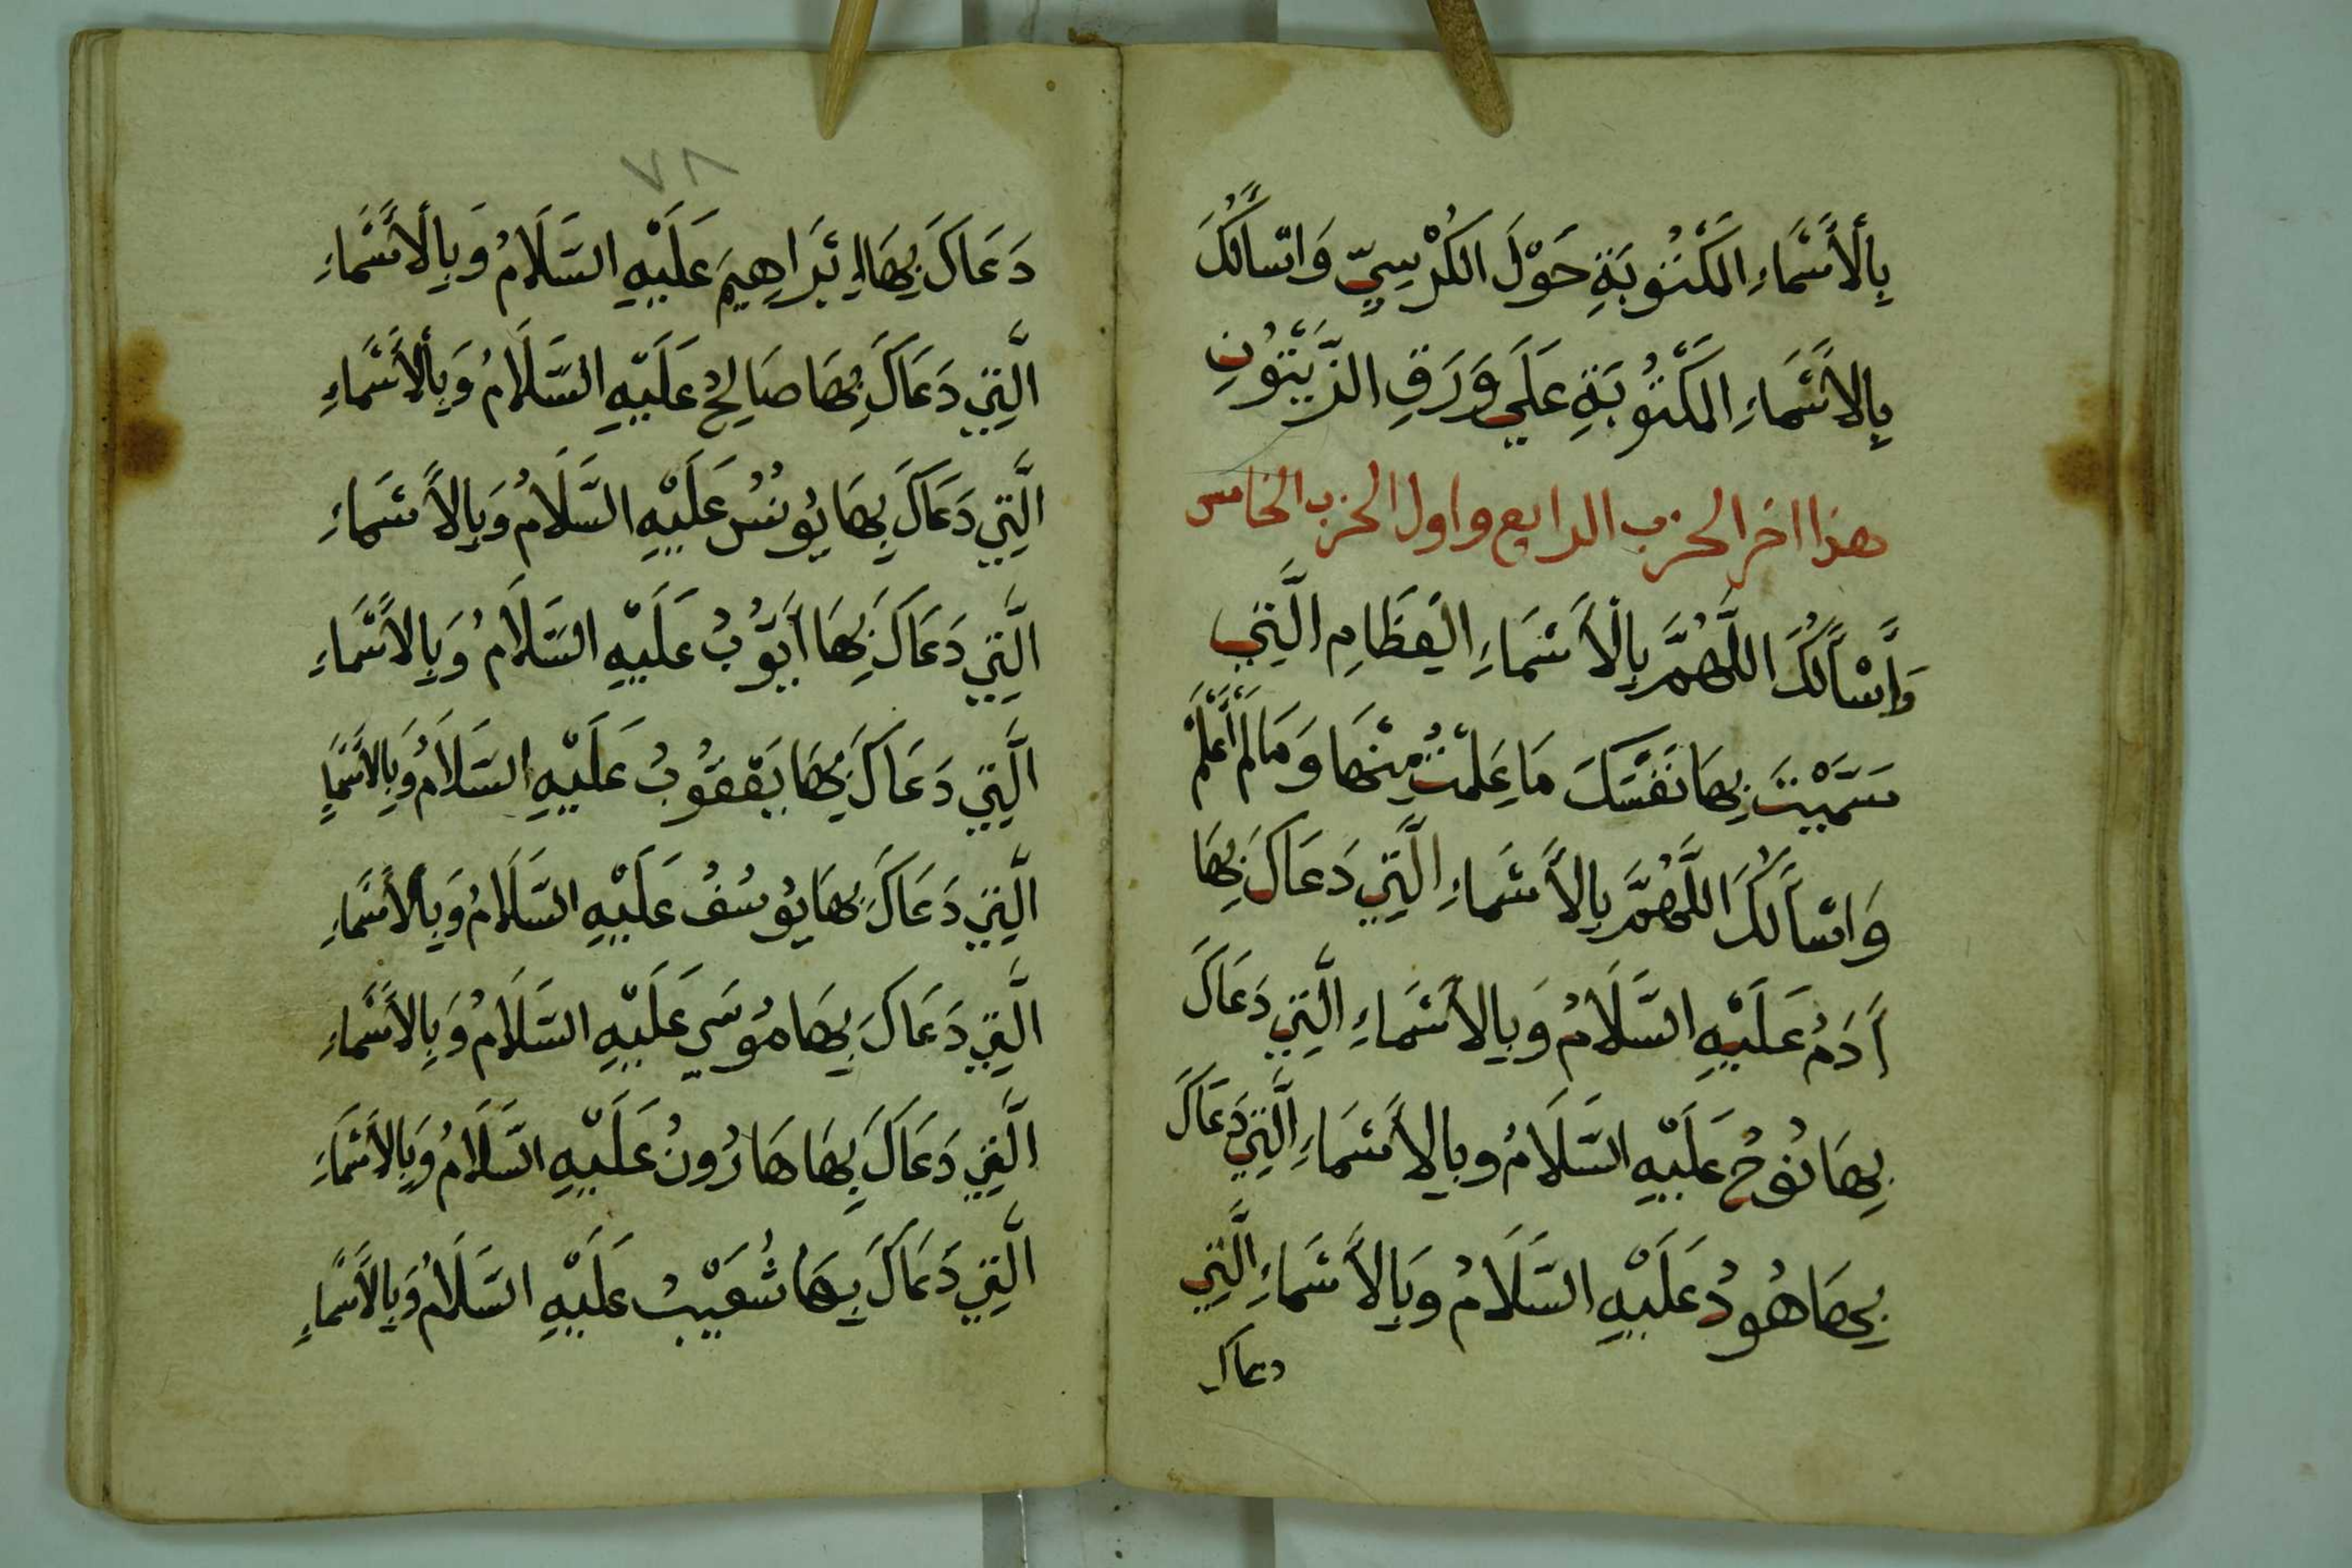 بِالْأَسْمَاءِ الْمَكْتُوبَةِ حَوْلَ الْكُرْسِيِّ وَاَسْأَلُكَ
بِالْأَسْمَاءِ الْمَكْتُوبَةِ عَلَي وَرَقِ الزَّيْتُونِ
هذا اخر الحزب الرابع واول الحزب الخامس
وَاَسْأَلُكَ اللَّهُمَّ بِالْأَسْمَاءِ الْعِظَامِ الَّتِي
سَمَّيْتَ بِهَا نَفْسَكَ مَا عَلِمْتُ مِنْهَا وَمَا لَمْ أَعْلَمْ
وَاَسْأَلُكَ اللَّهُمَّ بِالْأَسْمَاءِ الَّتِي دَعَاكَ بِهَا
أَدَمُ عَلَيْهِ السَّلَامُ وَبِالْأَسْمَاءِ الَّتِي دَعَاكَ
بِهَا نُوحُ عَلَيْهِ السَّلَامُ وبِالْأَسْمَاءِ الَّتِي دَعَاكَ
بِهَا هُودُ عَلَيْهِ السَّلَامُ وَبِالْأَسْمَاءِ الَّتِي
دعاك
٧٨
دَعَاكَ بِهَا إِبْرَاهِيمَ عَلَيْهِ السَّلَامُ وَبِالْأَسْمَاءِ
الَّتِي دَعَاكَ بِهَا صَالِحُ عَلَيْهِ السَّلَامُ وَبِالْأَسْمَاءِ
الَّتِي دَعَاكَ بِهَا يُونُسُ عَلَيْهِ السَّلَامُ وَبِالْأَسْمَاءِ
الَّتِي دَعَاكَ بِهَا أَيُّوبُ عَلَيْهِ السَّلَامُ وَبِالْأَسْمَاءِ
الَّتِي دَعَاكَ بِهَا يَعْقُوبُ عَلَيْهِ السَّلَامُ وَبِالْأَسْمَاءِ
الَّتِي دَعَاكَ بِهَا يُوسُفُ عَلَيْهِ السَّلَامُ وَبِالْأَسْمَاءِ
الَّتِي دَعَاكَ بِهَا مُوسَي عَلَيْهِ السَّلَامُ وَبِالْأَسْمَاءِ
الَّتِي دَعَاكَ بِهَا هَارُونُ عَلَيْهِ السَّلَامُ وَبِالْأَسْمَاءِ
الَّتِي دَعَاكَ بِهَا شُعَيْبُ عَلَيْهِ السَّلَامُ وَبِالْأَسْمَاءِ